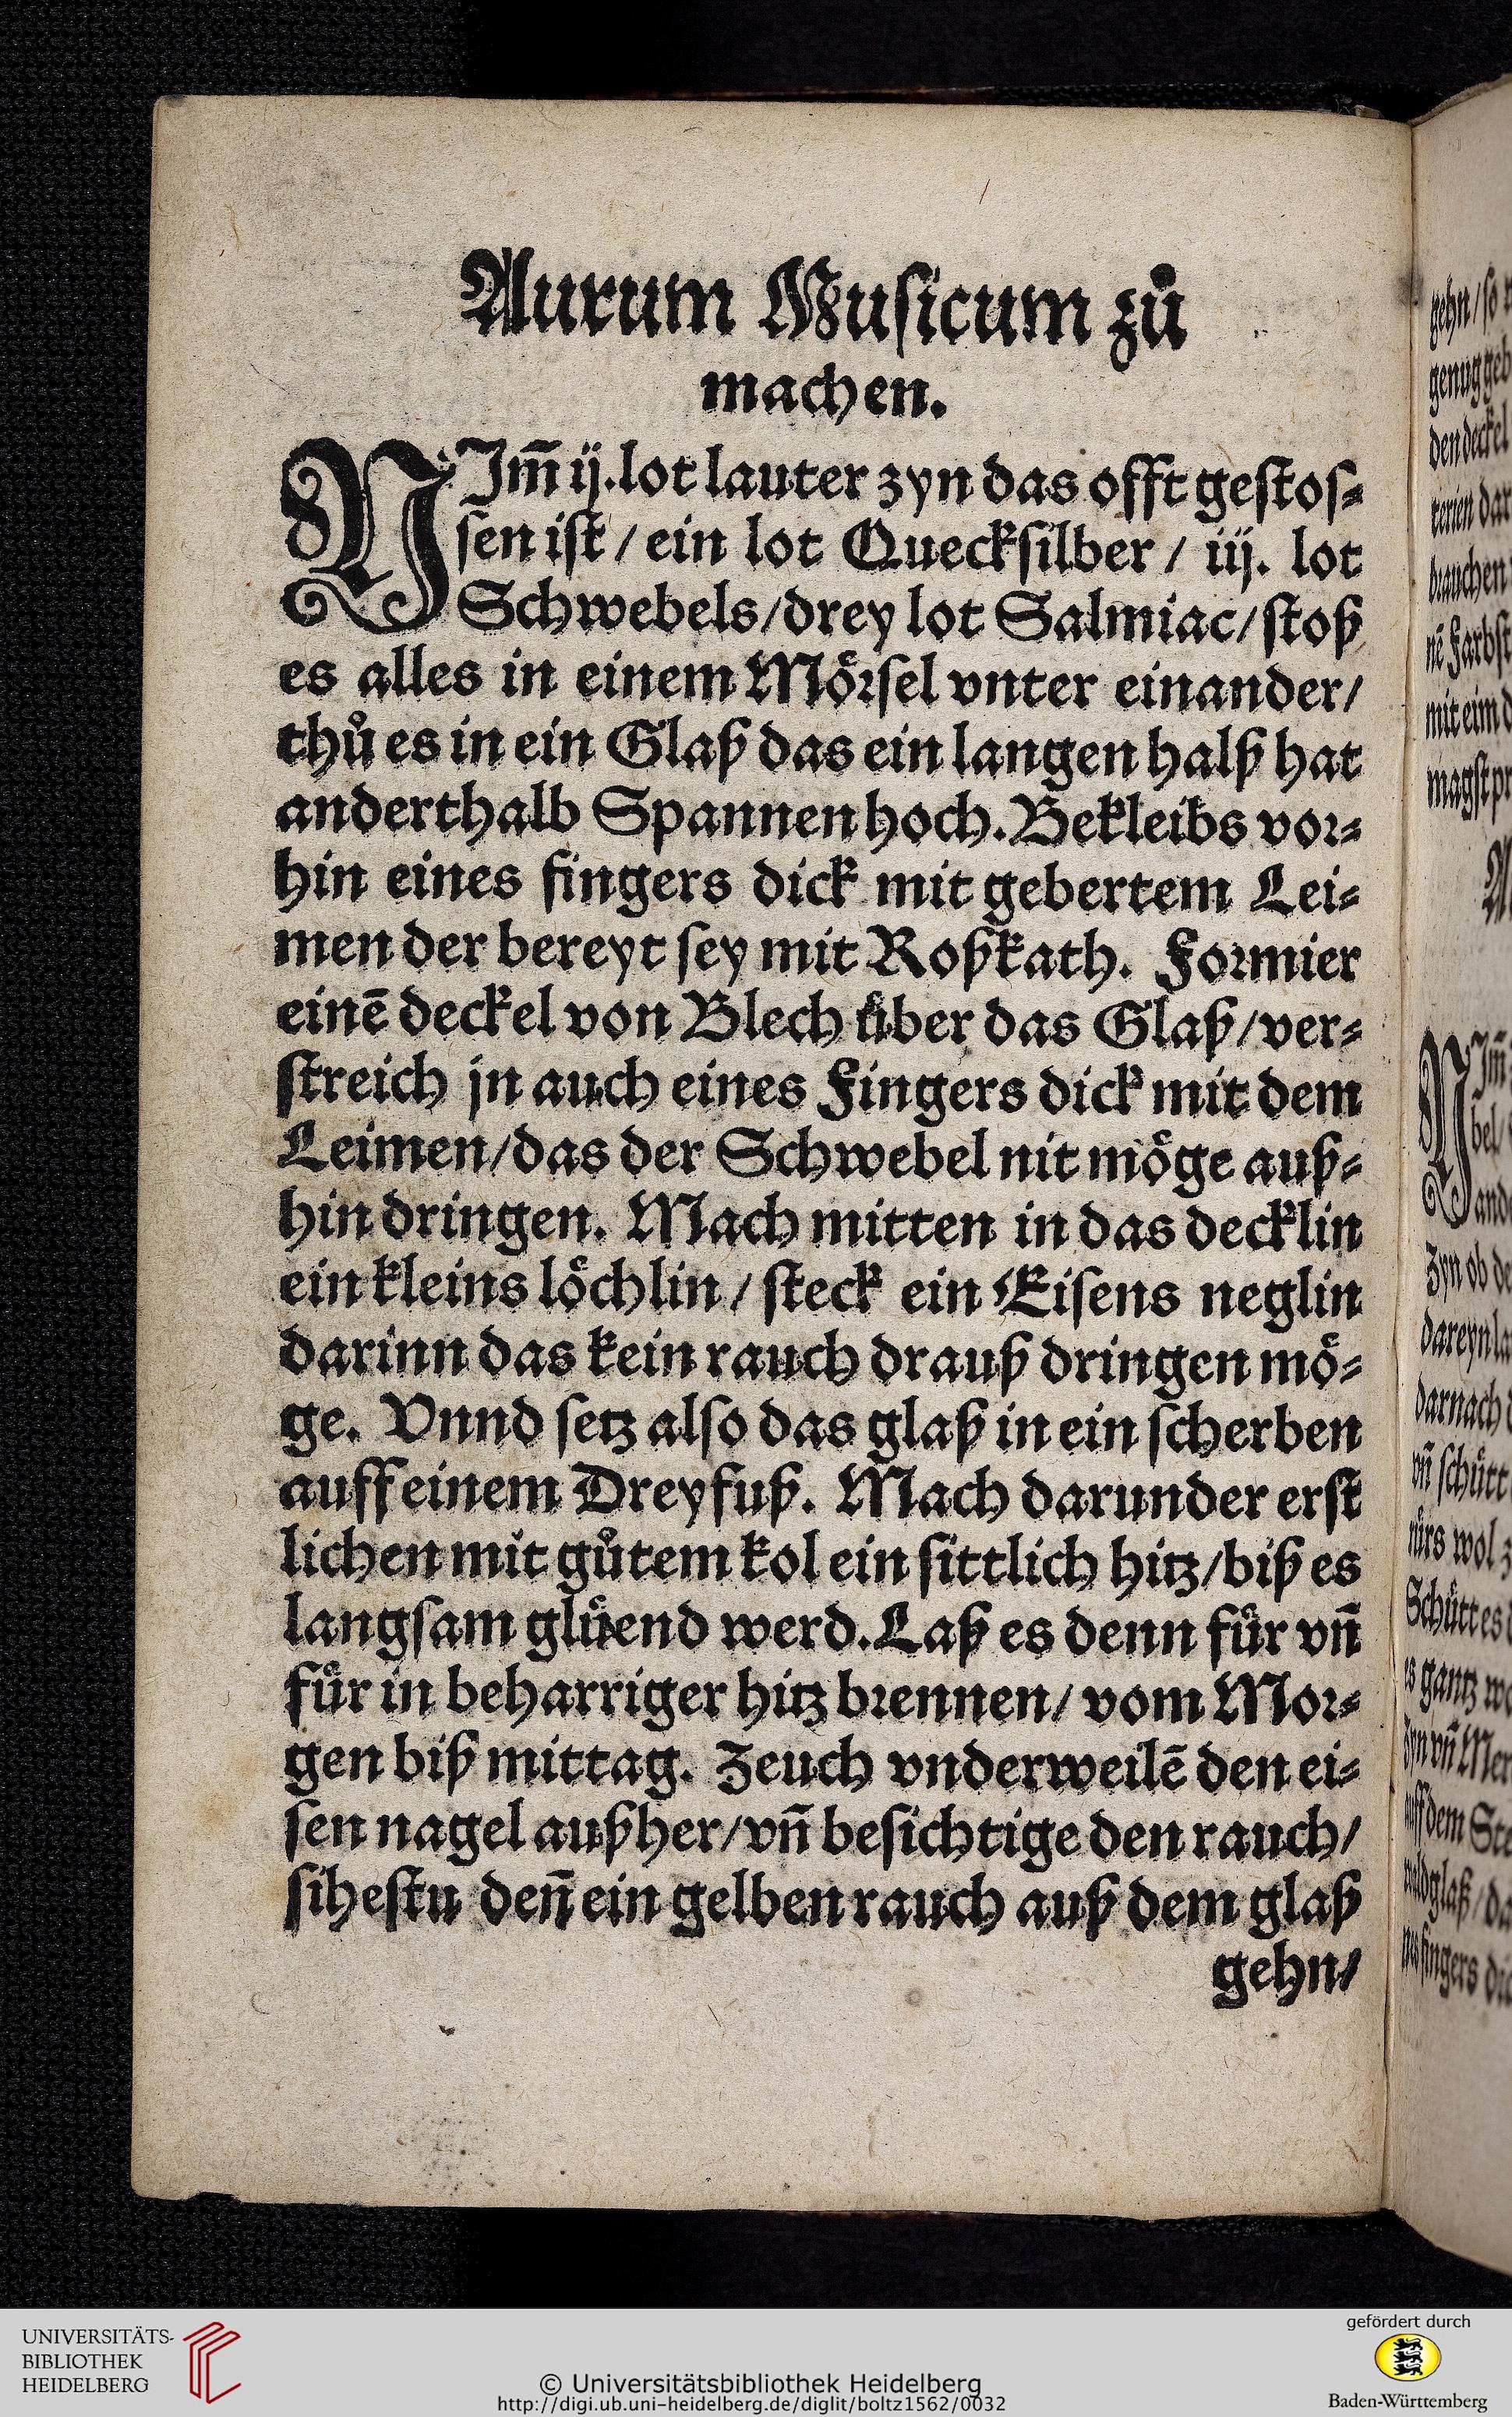 Aurum Musicum zů
machen.
NIm̄ ij. lot lauter zyn das offt gestos⸗
sen ist / ein lot Quecksilber / iij. lot
Schwebels / drey lot Salmiac / stoß
es alles in einem Mörsel vnter einander /
thů es in ein Glaß das ein langen halß hat
anderthalb Spannen hoch. Bekleibs vor⸗
hin eines fingers dick mit gebertem Lei⸗
men der bereyt sey mit Roßkath. Formier
einē deckel von Blech über das Glaß / ver⸗
streich jn auch eines Fingers dick mit dem
Leimen / das der Schwebel nit möge auß⸗
hin dringen. Mach mitten in das decklin
ein kleins löchlin / steck ein Eisens neglin
darinn das kein rauch drauß dringen mö⸗
ge. Vnnd setz also das glaß in ein scherben
auff einem Dreyfuß. Mach darunder erst
lichen mit gůtem kol ein sittlich hitz / biß es
langsam glüend werd. Laß es denn für vn̄
für in beharriger hitz brennen / vom Mor⸗
gen biß mittag. Zeuch vnderweilē den ei⸗
sen nagel außher / vn̄ besichtige den rauch /
sihestu den̄ ein gelben rauch auß dem glaß
gehn /
gehn / so
genug geb
den deckel
terien dar
brauchen
nē Farbst
mit eim d
magst pr
A
NIm̄
bel /
and
Zyn ob de
dareyn la
darnach
vn̄ schütt
rürs wol z
Schütt es
es gantz we
Zyn vn̄ Mer
auff dem Ste
waldglaß / da
nes fingers dic
UNIVERSITÄTS-
BIBLIOTHEK
HEIDELBERG
© Universitätsbibliothek Heidelberg
http://digi.ub.uni-heidelberg.de/diglit/boltz1562/0032
gefördert durch
Baden-Württemberg